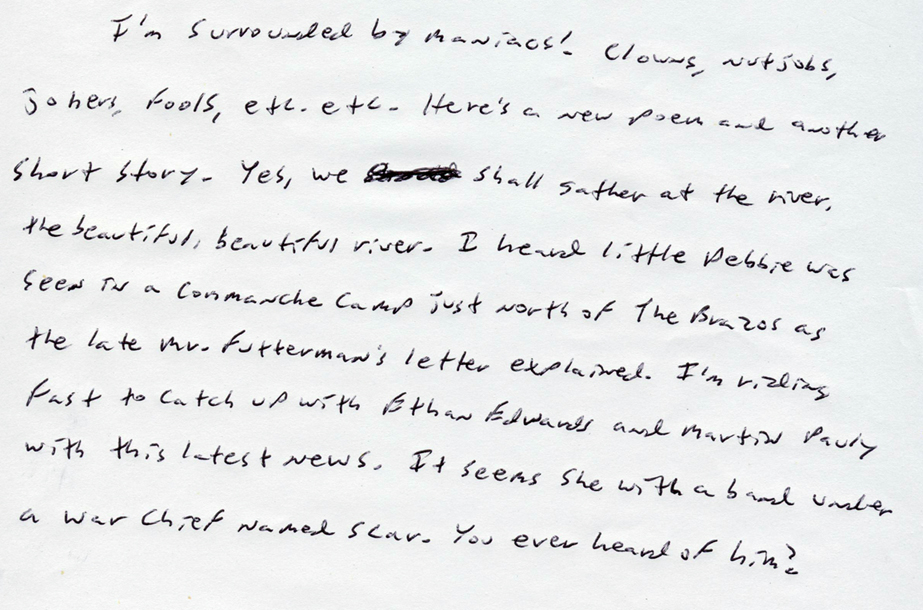 I'm surrounded by maniacs! Clowns, nutjobs,
jokers, fools, etc. etc. Here's a new poem and another
short story. Yes, we shall gather at the river,
the beautiful, beautiful river. I heard little Debbie was
seen in a Commanche camp just north of The Brazos as
the late Mr. Futterman's letter explained. I'm riding
fast to catch up with Ethan Edwards and Martin Pauly
with this latest news. It seems she with a band under
a war chief named Scar. You ever heard of him?